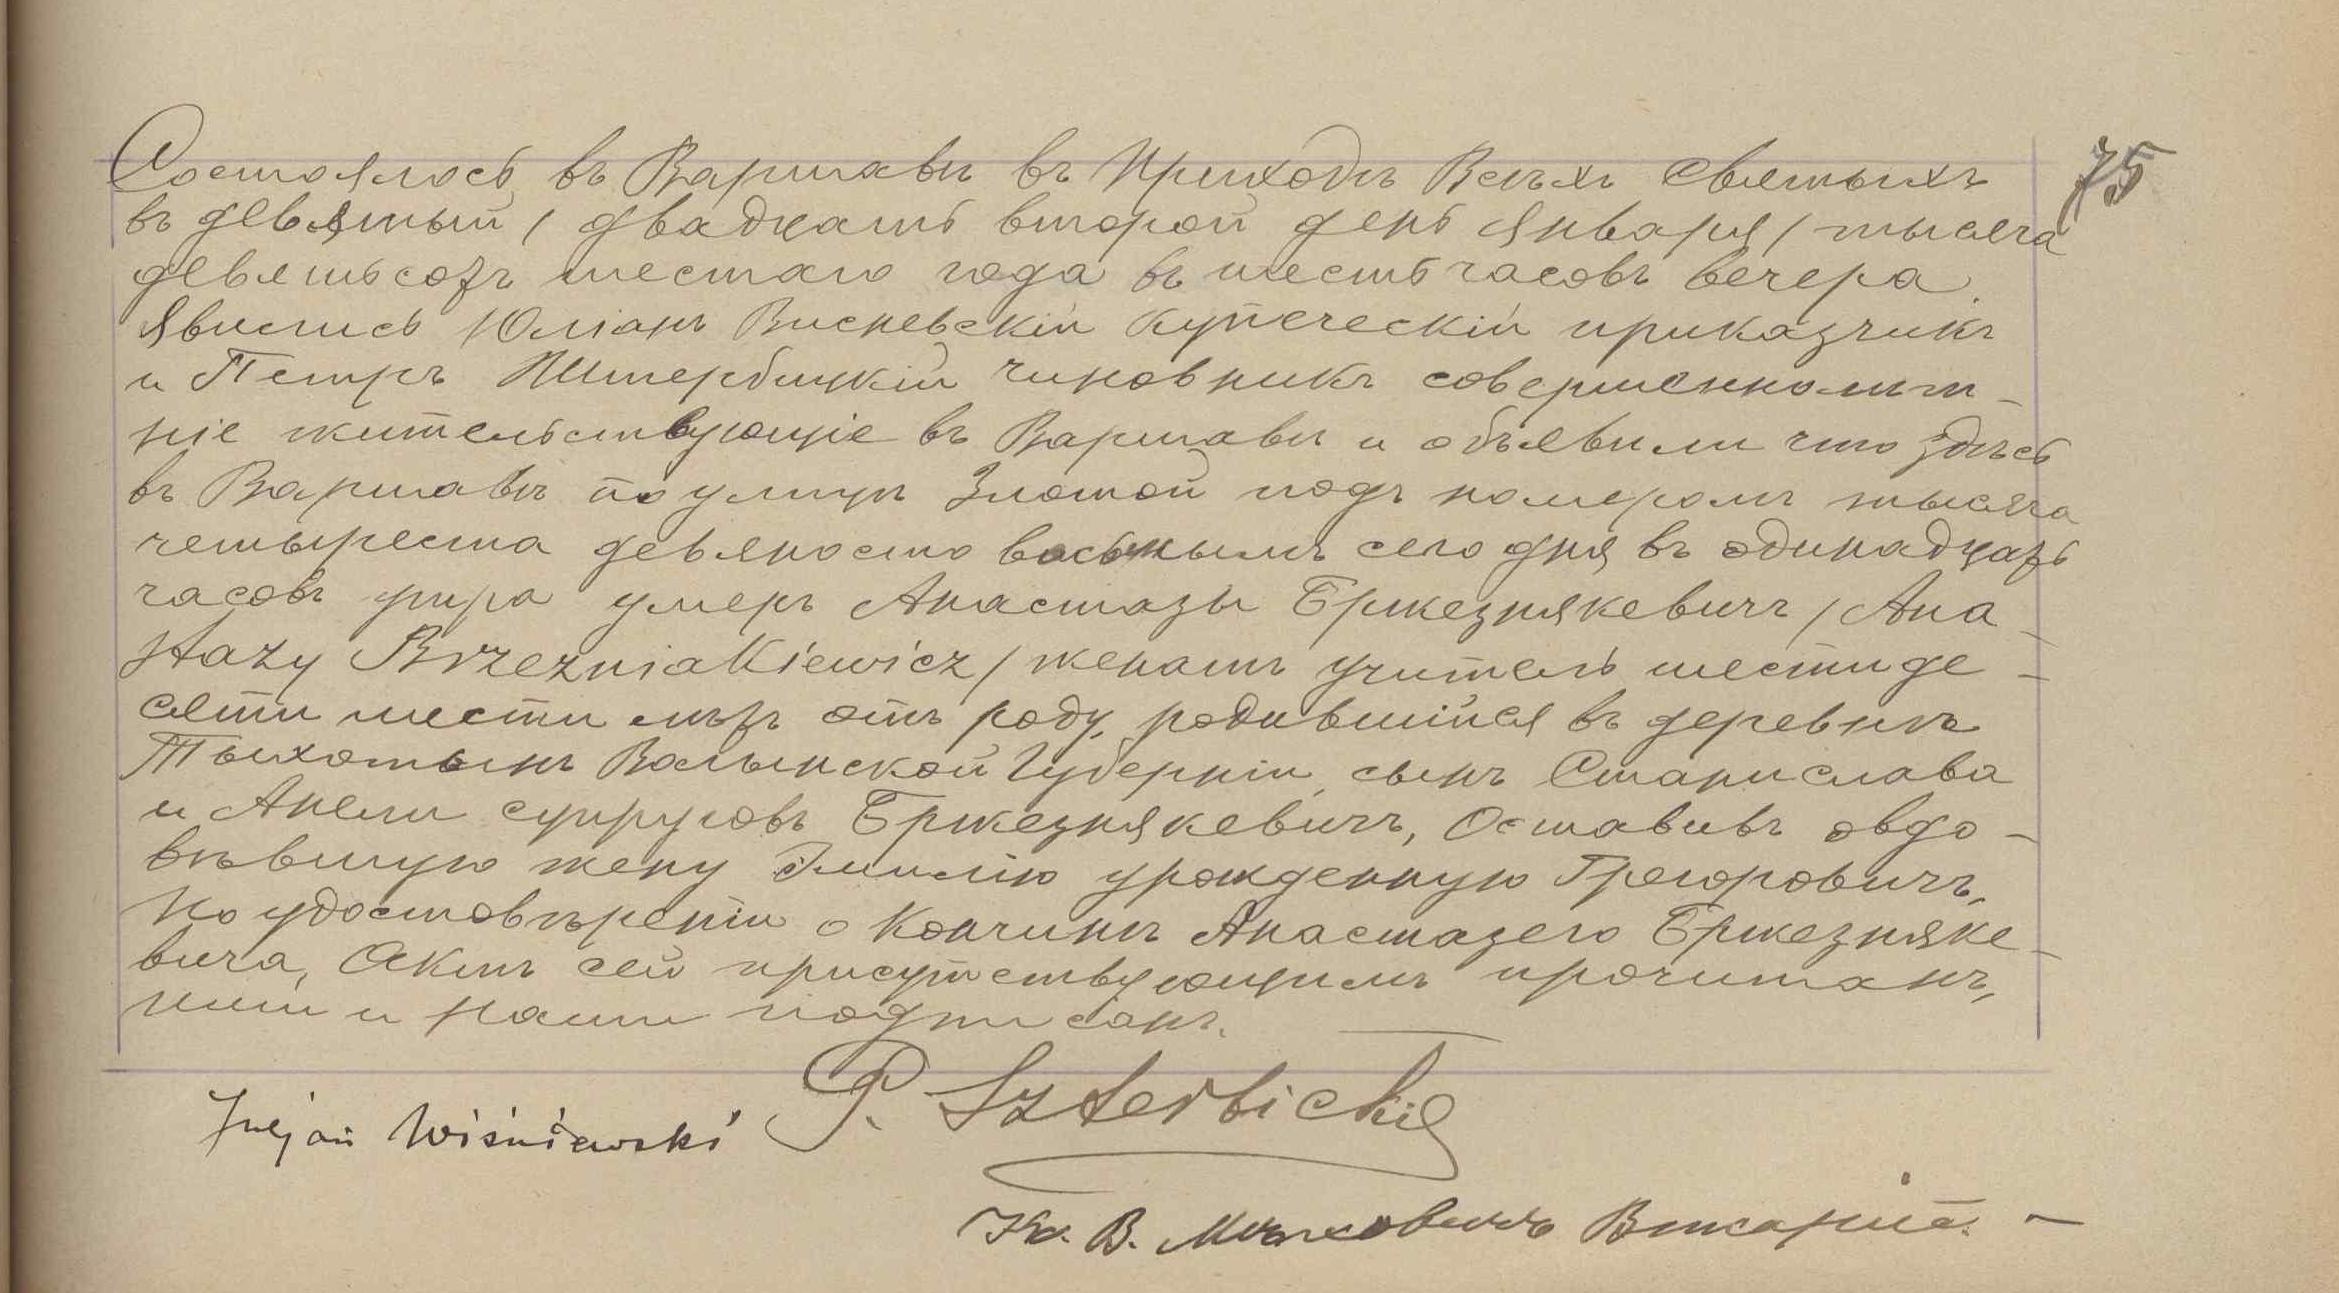 Состоялось въ Варшавѣ въ Приходѣ Всѣхъ Святыхъ
75
въ девятый / двадцать второй день Января / тысяча
девятьсотъ шестаго года въ шесть часовъ вечера.
Явились Юліанъ Висневскій купеческій приказчикъ
и Петръ Штербицкій чиновникъ совершеннолѣт-
ніе жительствующіе въ Варшавѣ и объявили что здѣсь
въ Варшавѣ по улицѣ Злотой подъ номеромъ тысяча
четыреста девяносто восьмымъ сего дня въ одинадцать
часовъ утра умеръ Анастазы Бржезнякевичъ / Ana-
stazy Brzezniakiewicz / женатъ учитель шестиде-
сяти шести лѣтъ отъ роду, родившійся въ деревнѣ
Тыхотынѣ Волынской Губерніи, сынъ Станислава
и Анели супруговъ Бржезнякевичъ, Оставивъ овдо-
вѣвшую жену Эмилію урожденную Грегоровичъ,
По удостовѣреніи о Кончинѣ Анастазего Бржезняке-
вича, Актъ сей присутствующимъ прочитанъ,
ими и Нами подписанъ.
Juljan Wiśniewski P. Szterbicki
Кс. В. Викарій. -